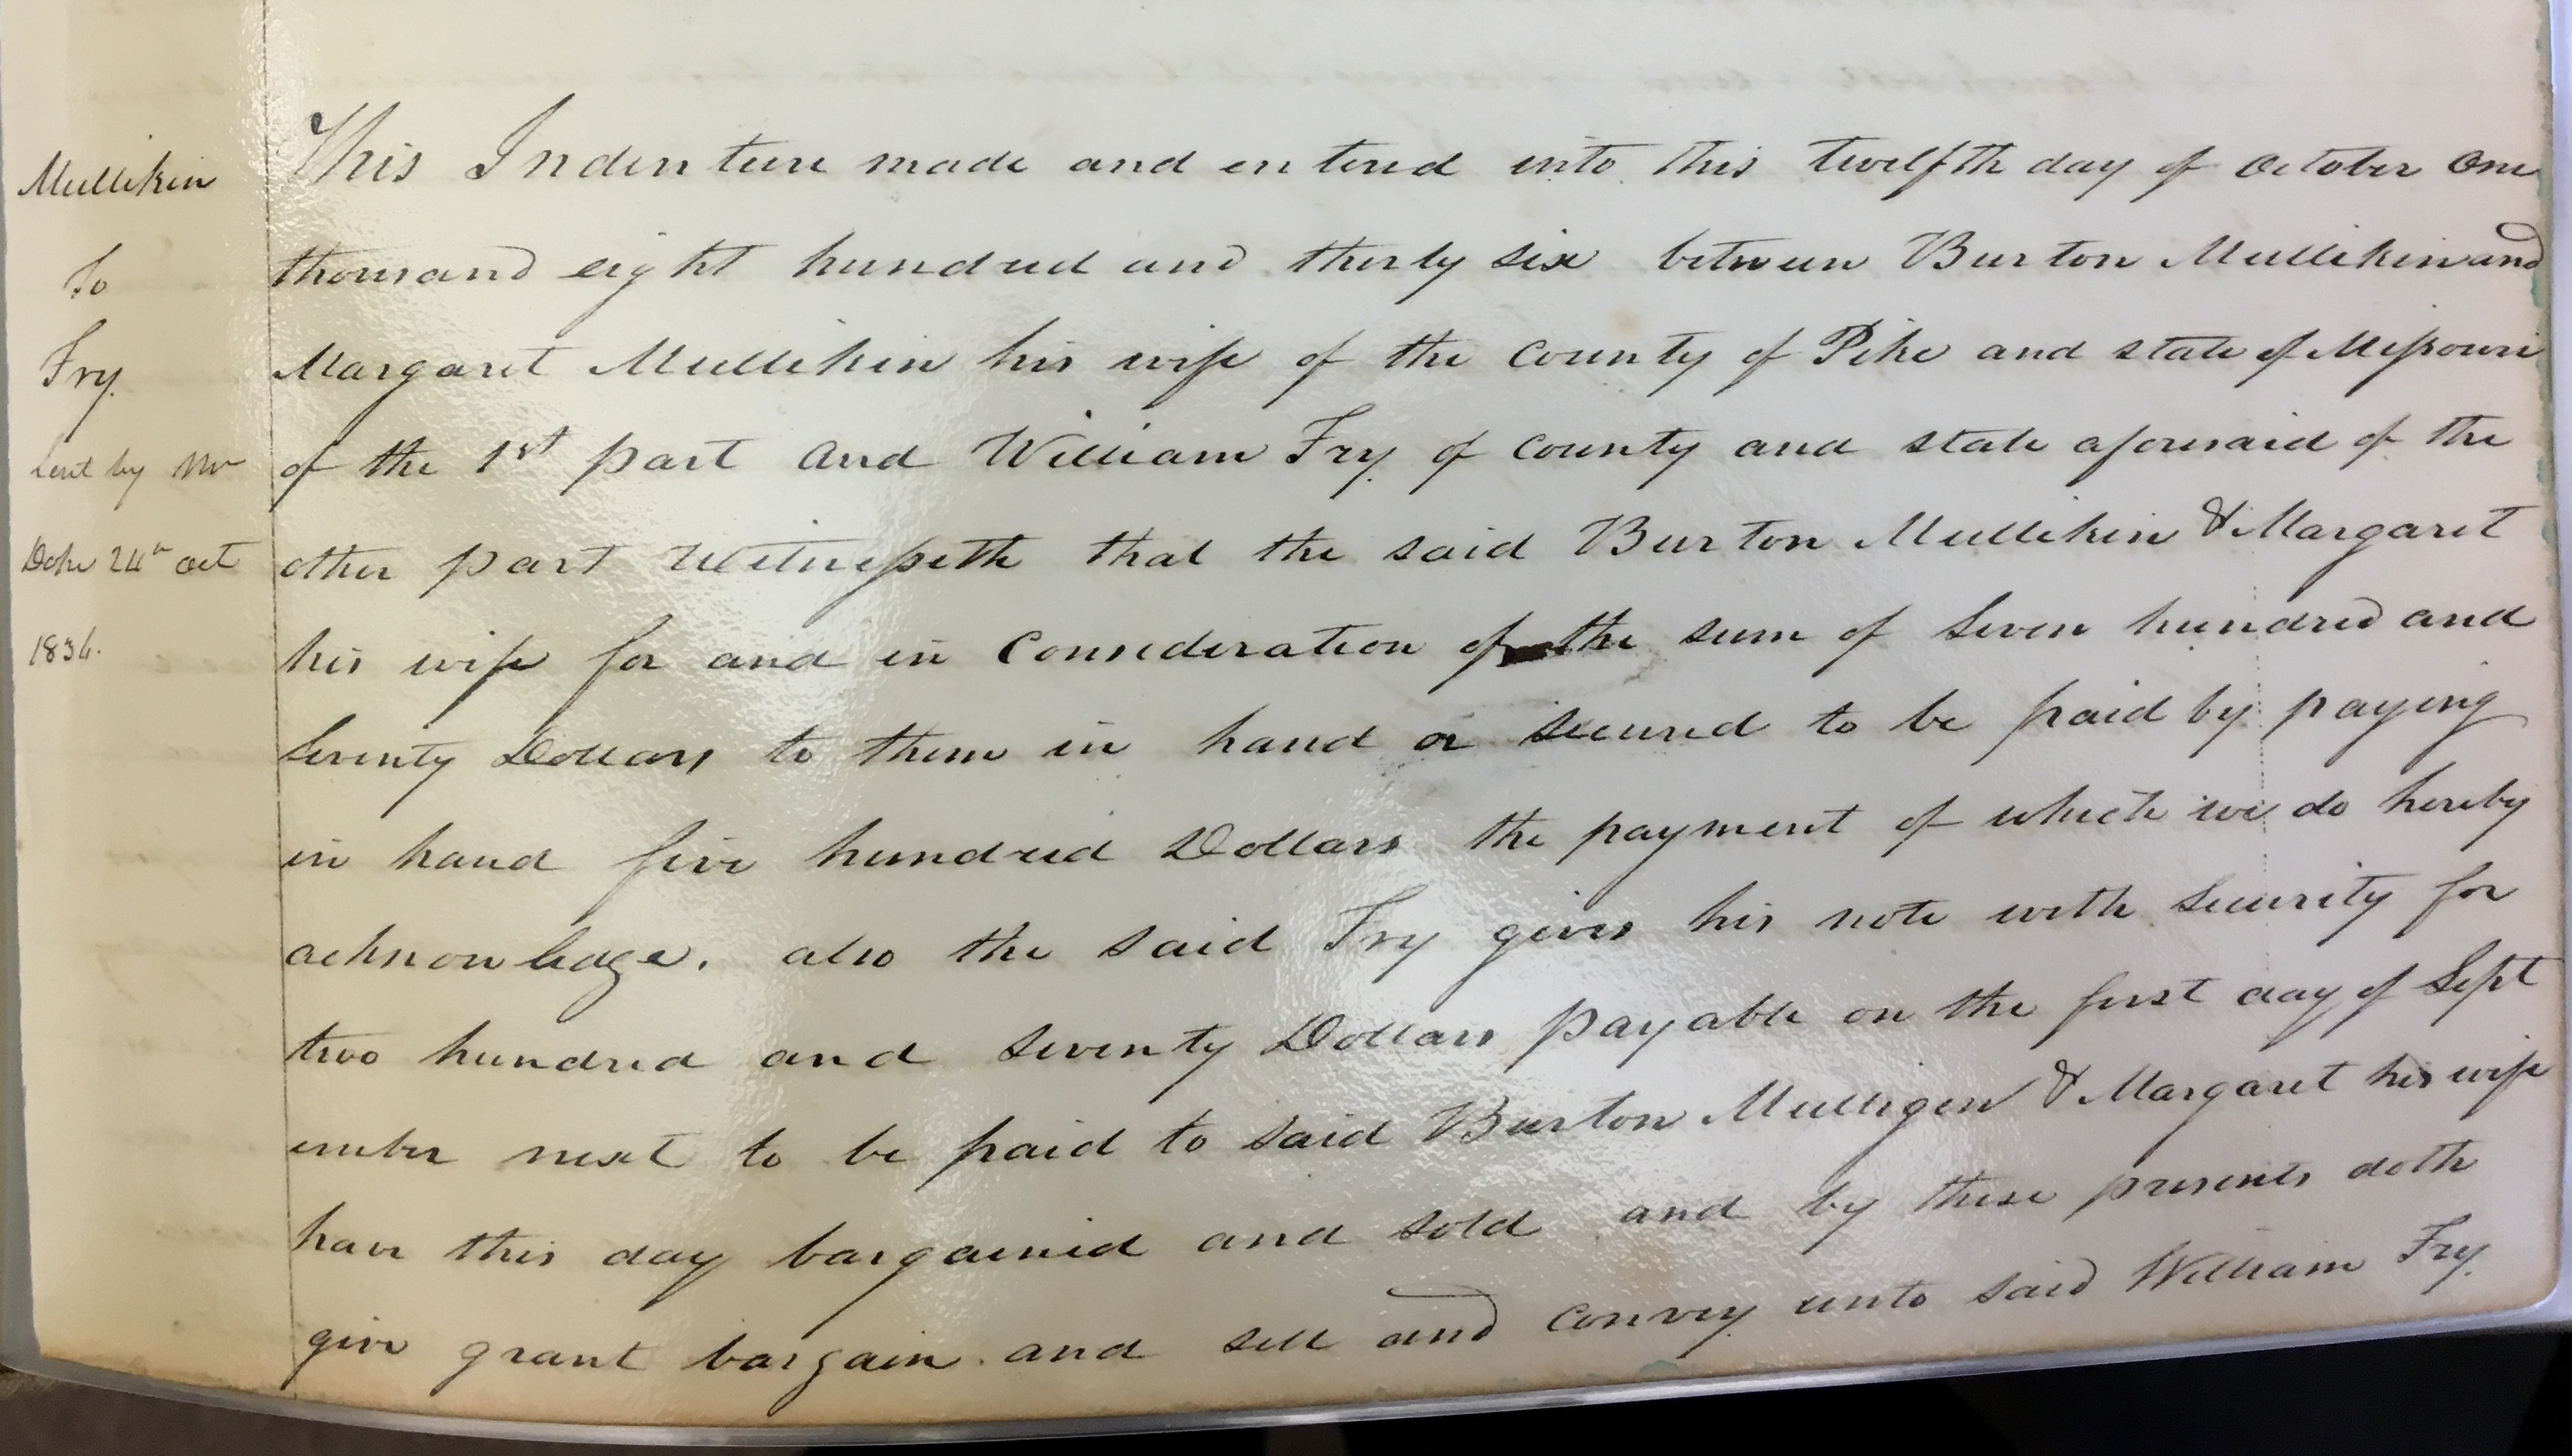 Mullikin
To
Fry
Sent by Mr
Doke 24th Oct
1836.
This Indenture made and entered into this twelfth day of October One
thousand eight hundred and thirty six between Burton Mullikin and
Margaret Mullikin his wife of the County of Pike and state of Missouri
of the 1st part and William Fry of County and state aforesaid of the
other part Witnesseth that the said Burton Mullikin & Margaret
his wife for and in Consideration of the sum of Seven hundred and
Seventy Dollars to them in hand or secured to be paid by paying
in hand five hundred Dollars the payment of which we do hereby
acknowledge. also the said Fry gives his note with Security for
two hundred and Seventy Dollars payable on the first day of Sept
ember next to be paid to said Burton Mulligen & Margaret his wife
have this day bargained and sold and by these presents doth
give grant bargain and sell and Convey unto said William Fry